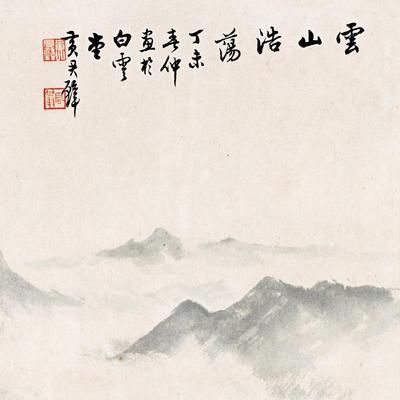 雲山浩蕩
丁未
春仲
畫於
白雲
堂
黃君璧